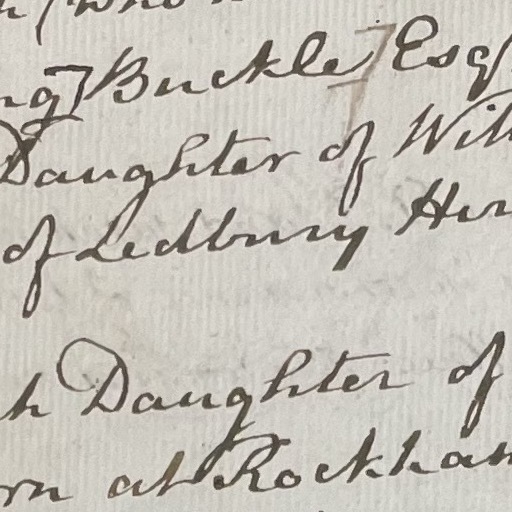 ng] Buckle] Esqr
Daughter of Will
of Ledbury Her
h Daughter of
rn at Rockham